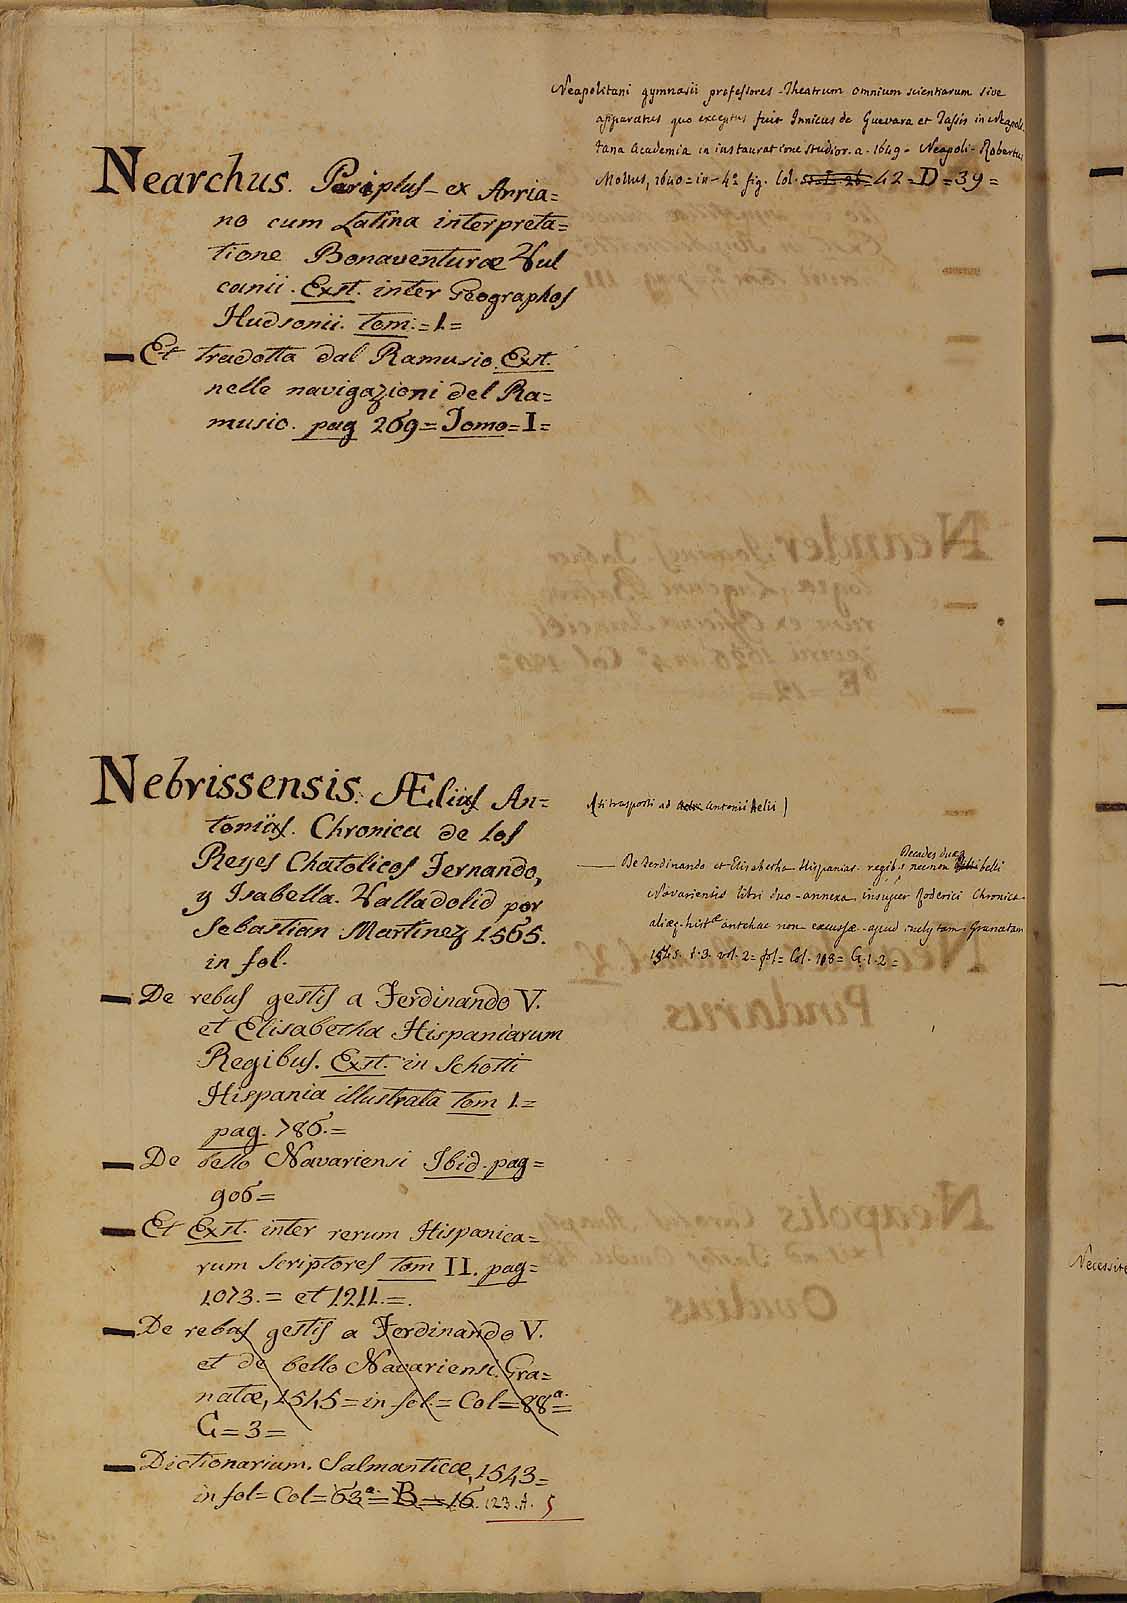 Neapolitani gymnasii professores - Theatrum omnium scientiarum sive
apparatus quo exceptus fuit Innicus de Guevara et Tassis in Neapoli-
tana Academia in instauratione studior. a. 1649 - Neapoli - Robertus
Mollus, 1640 = in - 4º fig. Col. 42 = D = 39 =
Nearchus. Periplus - ex Arria=
no cum Latina interpreta=
tione Bonaventuræ Vul
canii. Exst. inter Geographos
Hudsonii. tom: = 1 =
Et tradotta dal Ramusio. Exst.
nelle navigazioni del Ra=
musio. pag 269 = Tomo = I =
Nebrissensis. Ælius An=
tonius. Chronica de los
Reyes Chatolicos Fernando,
y Isabella. Valladolid por
Sebastian Martinez 1565.
in fol.
De rebus gestis a Ferdinando V.
et Elisabetha Hispaniarum
Regibus. Exst. in Schotti
Hispania illustrata tom 1. =
pag. 786. =
De bello Navariensi Ibid. pag =
906 =
Et Exst. inter rerum Hispanica=
rum Scriptores tom II. pag =
1073. = et 1211. =.
De rebus gestis a Ferdinando V.
et de bello Navariensi. Gra=
natæ, 1545 = in fol. = Col = 88ª. =
G = 3 =
Dictionarium. Salmanticæ, 1543 =
in fol = Col = 63ª. = B = 16. 123. A. 5
(si trasporti ad Antonii Aelii)
De Ferdinando et Elisabetha Hispaniar. regibus Decades duæ necnon belli
Navariensis libri duo - annexa insuper Roderici Chronica
aliæq. histæ antehac non excussæ - apud inclytam Granatam
1545. t. 3. vol. 2 = fol = Col. 118 = G. 1. 2 =
Necessite